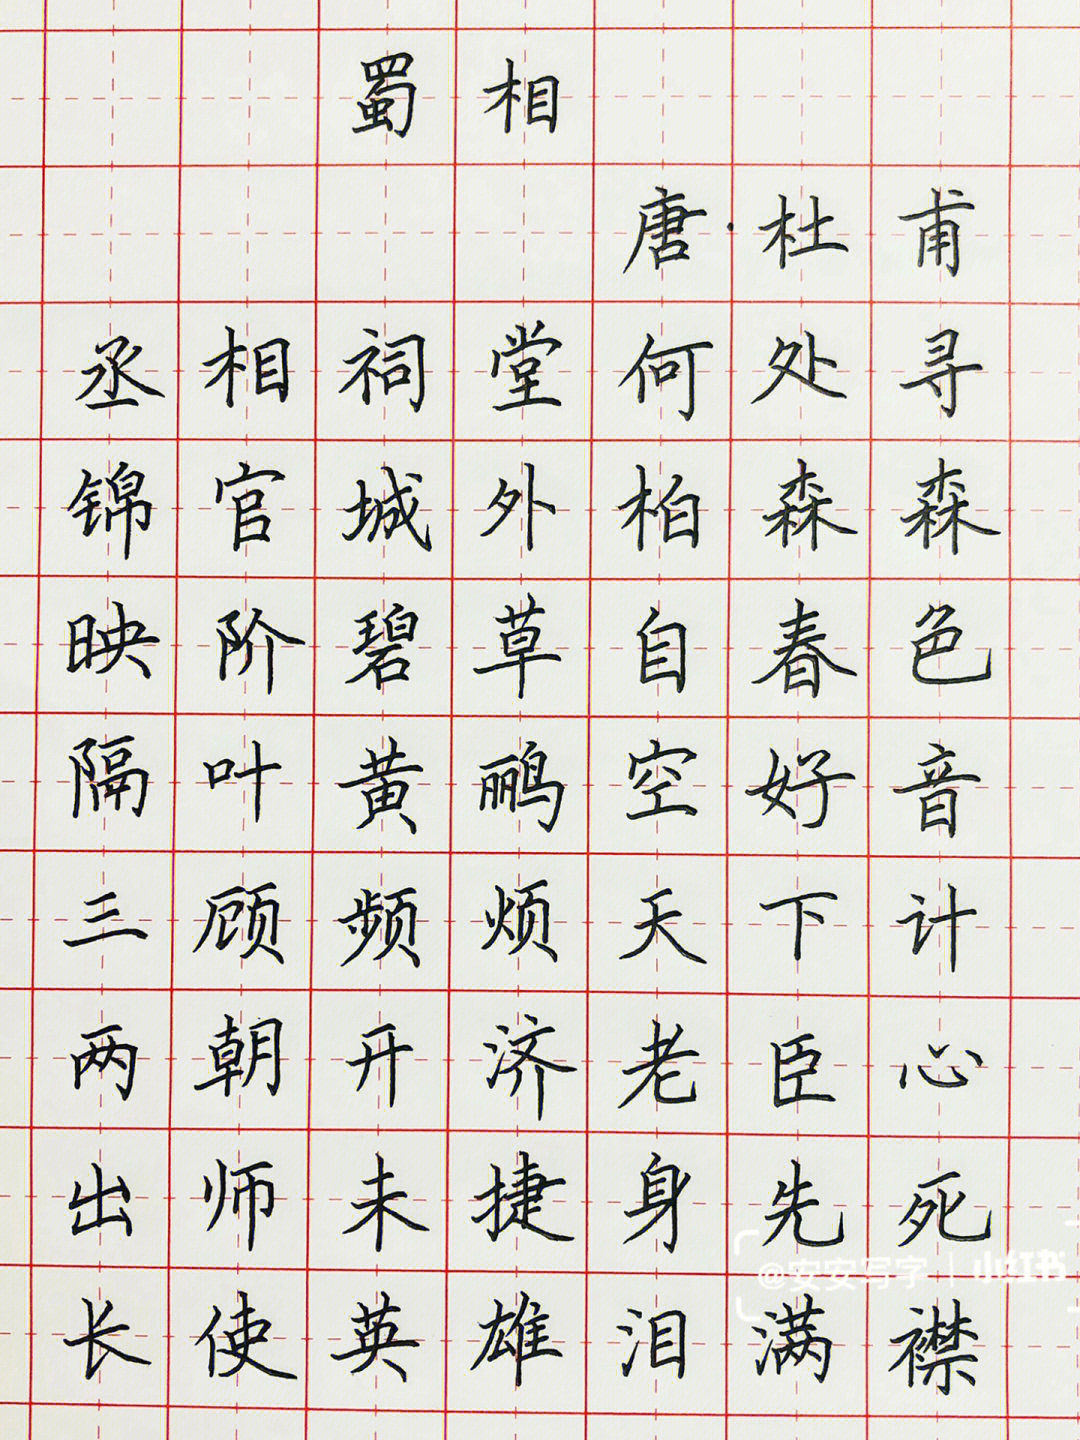 蜀相
唐·杜甫
丞相祠堂何处寻
锦官城外柏森森
映阶碧草自春色
隔叶黄鹂空好音
三顾频烦天下计
两朝开济老臣心
出师未捷身先死
@安安写字 | 小红书
长使英雄泪满襟